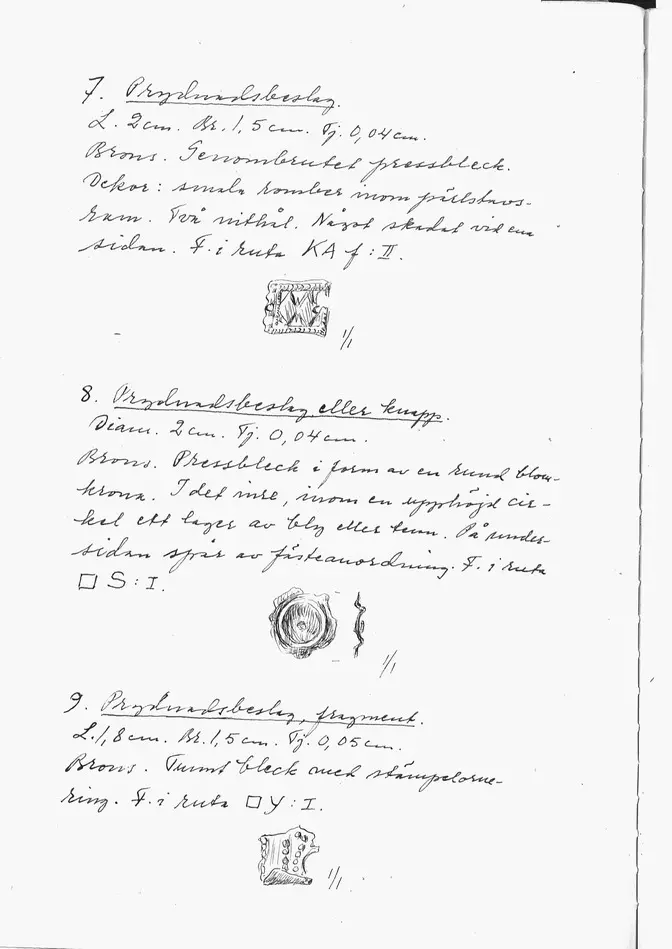 7. Prydnadsbeslag.
L. 2 cm. Br. 1,5 cm. Tj. 0,04 cm.
Brons. Genombrutet pressbleck.
Dekor: smala romber inom pärlstavs-
ram. Två nithål. Något skadat vid ena
sidan. F. i ruta KA f : II.
1/1
8. Prydnadsbeslag eller knapp.
Diam. 2 cm. Tj. 0,04 cm.
Brons. Pressbleck i form av en rund blom-
krona. I det inre, inom en upphöjd cir-
kel ett lager av bly eller tenn. På under-
sidan spår av fästeanordning. F. i ruta
□ S : I.
1/1
9. Prydnadsbeslag, fragment.
L. 1,8 cm. Br. 1,5 cm. Tj. 0,05 cm.
Brons. Tunnt bleck med stämpelorne-
ring. F. i ruta □ Y : I.
1/1